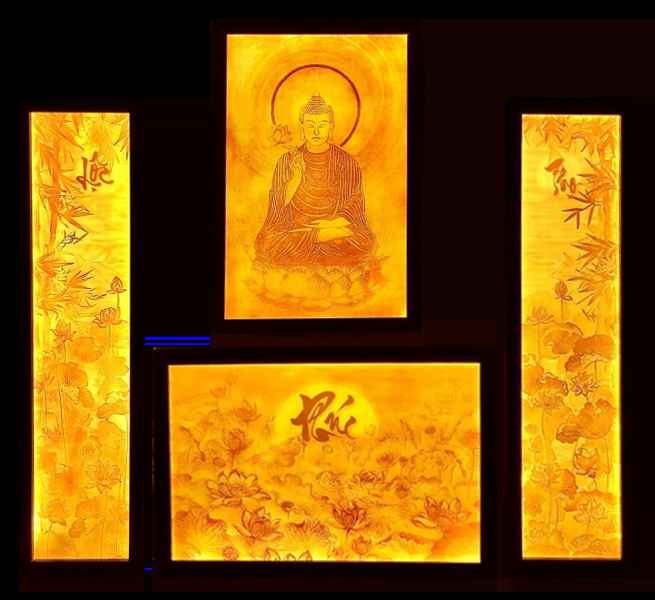 Lộc
Thọ
Phúc